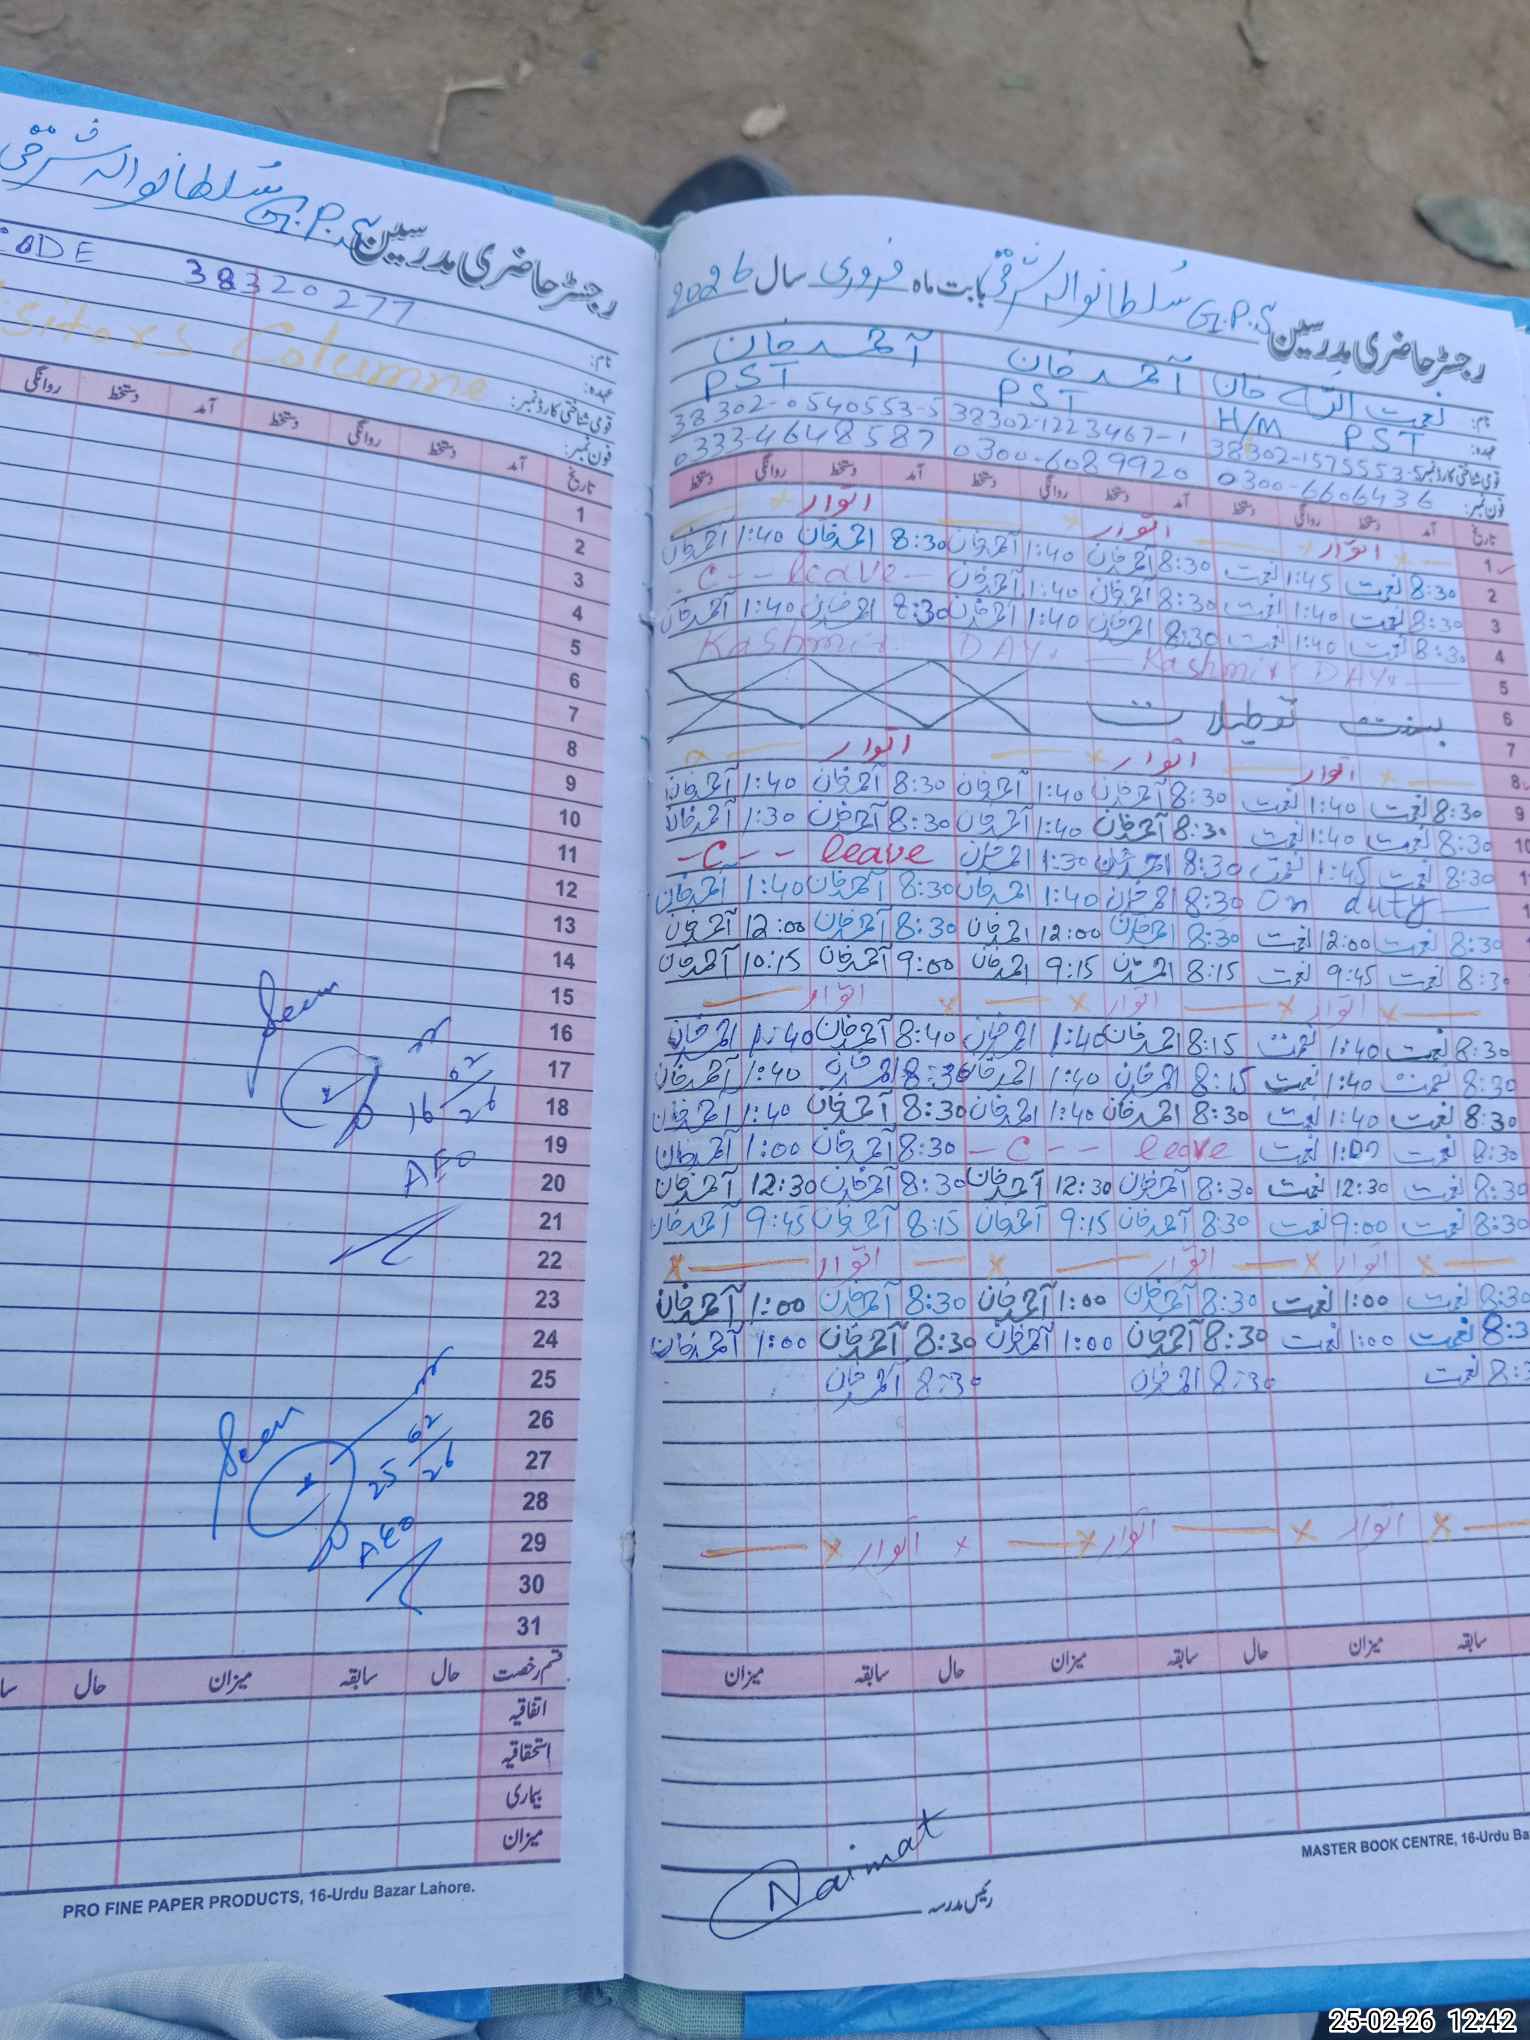 رجسٹر حاضری مدرسین G.P.S سُلطانوالہ شرقی
CODE 38320277
نام:
Visitors Columne
عہدہ:
قومی شناختی کارڈ نمبر:
فون نمبر:
تاریخ آمد دستخط روانگی دستخط آمد دستخط روانگی
1
2
3
4
5
6
7
8
9
10
11
12
13
14
15
16
17
18
19
20
21
22
23
24
25
26
27
28
29
30
31
Seen
16/02/26
AEO
Seen
25/02/26
AEO
قسم رخصت حال سابقہ میزان حال
اتفاقیہ
استحقاقیہ
بیماری
میزان
PRO FINE PAPER PRODUCTS, 16-Urdu Bazar Lahore.
رجسٹر حاضری مدرسین G.P.S سُلطانوالہ شرقی بابت ماہ فروری سال 2026
نام: نعمت اللہ خان احمد خان احمد خان
عہدہ: H/M PST PST PST
قومی شناختی کارڈ نمبر: 38302-1575553-5 38302-1223467-1 38302-0540553-5
فون نمبر: 0300-6606436 0300-6089920 0333-4648587
تاریخ آمد دستخط روانگی دستخط آمد دستخط روانگی دستخط آمد دستخط روانگی دستخط
1 اتوار اتوار اتوار
2 8:30 نعمت 1:45 نعمت 8:30 احمد خان 1:40 احمد خان 8:30 احمد خان 1:40 احمد خان
3 8:30 نعمت 1:40 نعمت 8:30 احمد خان 1:40 احمد خان C--- leave
4 8:30 نعمت 1:40 نعمت 8:30 احمد خان 1:40 احمد خان 8:30 احمد خان 1:40 احمد خان
5 Kashmir DAY. Kashmir DAY.
6 بسنت تعطیلات
7
8 اتوار اتوار اتوار
9 8:30 نعمت 1:40 نعمت 8:30 احمد خان 1:40 احمد خان 8:30 احمد خان 1:40 احمد خان
10 8:30 نعمت 1:40 نعمت 8:30 احمد خان 1:40 احمد خان 8:30 احمد خان 1:30 احمد خان
8:30 نعمت 1:45 نعمت 8:30 احمد خان 1:30 احمد خان C--- leave
On duty 8:30 احمد خان 1:40 احمد خان 8:30 احمد خان 1:40 احمد خان
8:30 نعمت 12:00 نعمت 8:30 احمد خان 12:00 احمد خان 8:30 احمد خان 12:00 احمد خان
8:30 نعمت 9:45 نعمت 8:15 احمد خان 9:15 احمد خان 9:00 احمد خان 10:15 احمد خان
اتوار اتوار اتوار
8:30 نعمت 1:40 نعمت 8:15 احمد خان 1:40 احمد خان 8:40 احمد خان 1:40 احمد خان
8:30 نعمت 1:40 نعمت 8:15 احمد خان 1:40 احمد خان 8:30 احمد خان 1:40 احمد خان
8:30 نعمت 1:40 نعمت 8:30 احمد خان 1:40 احمد خان 8:30 احمد خان 1:40 احمد خان
8:30 نعمت 1:00 نعمت C--- leave 8:30 احمد خان 1:00 احمد خان
8:30 نعمت 12:30 نعمت 8:30 احمد خان 12:30 احمد خان 8:30 احمد خان 12:30 احمد خان
8:30 نعمت 9:00 نعمت 8:30 احمد خان 9:15 احمد خان 8:15 احمد خان 9:45 احمد خان
اتوار اتوار اتوار
8:30 نعمت 1:00 نعمت 8:30 احمد خان 1:00 احمد خان 8:30 احمد خان 1:00 احمد خان
8:3 نعمت 1:00 نعمت 8:30 احمد خان 1:00 احمد خان 8:30 احمد خان 1:00 احمد خان
8:3 نعمت 8:30 احمد خان 8:30 احمد خان
اتوار اتوار اتوار
سابقہ میزان حال سابقہ میزان حال سابقہ میزان
MASTER BOOK CENTRE, 16-Urdu Ba
Naimat
رئیس مدرسہ
25-02-26 12:42